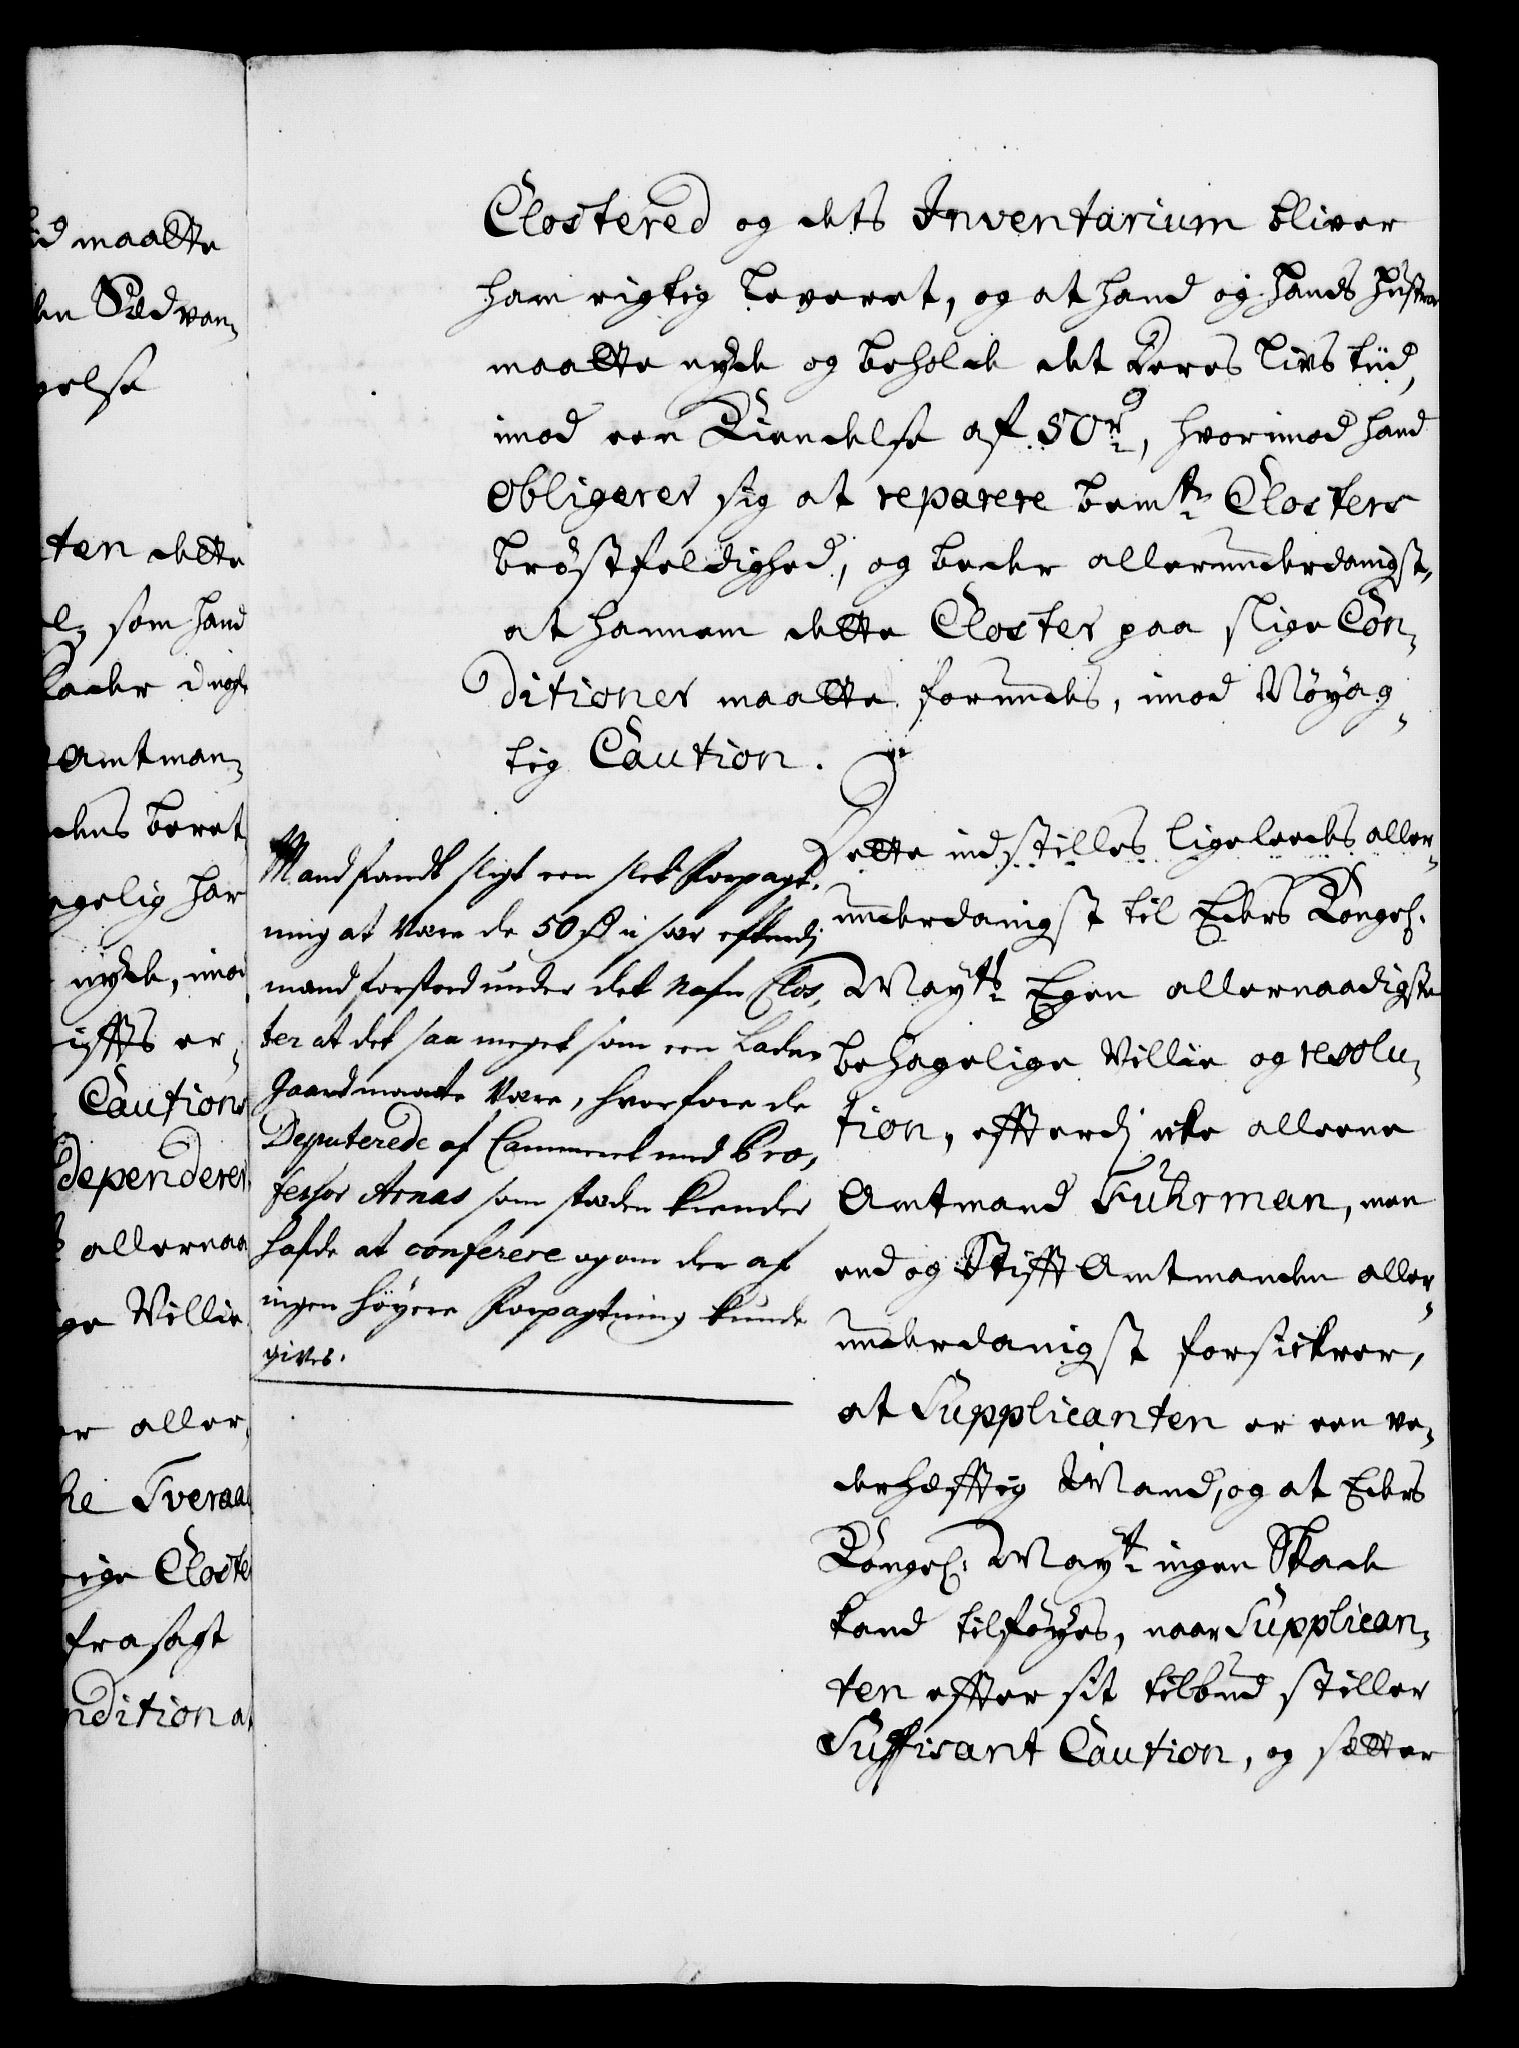 id maatte
en Sædvan-
gelse
ten dette
som hand
Amtman-
dens beret
gelig har
nyde, imod
iffts er-
Caution
dependerer
allernaa
ge Villie
er aller-
he Tveraa
ige Closter
frasagt
ndition at
Closteret og dets Inventarium bliver
ham rigtig leveret, og at hand og hands hustrue
maatte nyde og beholde det deres livs tiid,
imod een Kiendelse af 50 rd, hvorimod hand
obligerer sig at reparere bemte Closters
bröstfeldighed, og beder allerunderdanigst,
at hannem dette Closter paa slige Con-
ditioner maatte forundes, imod Nöyag-
tig Caution.
Mand fandt sligt een slet Forpagt-
ning at være de 50 rd i sær efterdj
mand forstod under det Nafn Clos-
ter at det saa meget som een Lade-
gaard maatte være, hvorfore de
Deputerede af Cammeret med Pro-
fessor Arnas som stæden kiender
hafde at conferere og om der af
ingen höyere Forpagtning kunde
gives.
Dette indstilles ligeleedes aller-
underdanigst til Eders Kongel.
Mayts Egen allernaadigste
behagelige Villie og resolu-
tion, effterdj icke alleene
Amtmand Fuhrman, men
end og Stifft Amtmanden aller-
underdanigst forsickrer,
at Supplicanten er een ve-
derhæfftig Mand, og at Eders
Kongel: Mayt ingen Skade
kand tilföyes, naar Supplican-
ten effter sit tilbud stiller
Suffisant Caution, og sætter